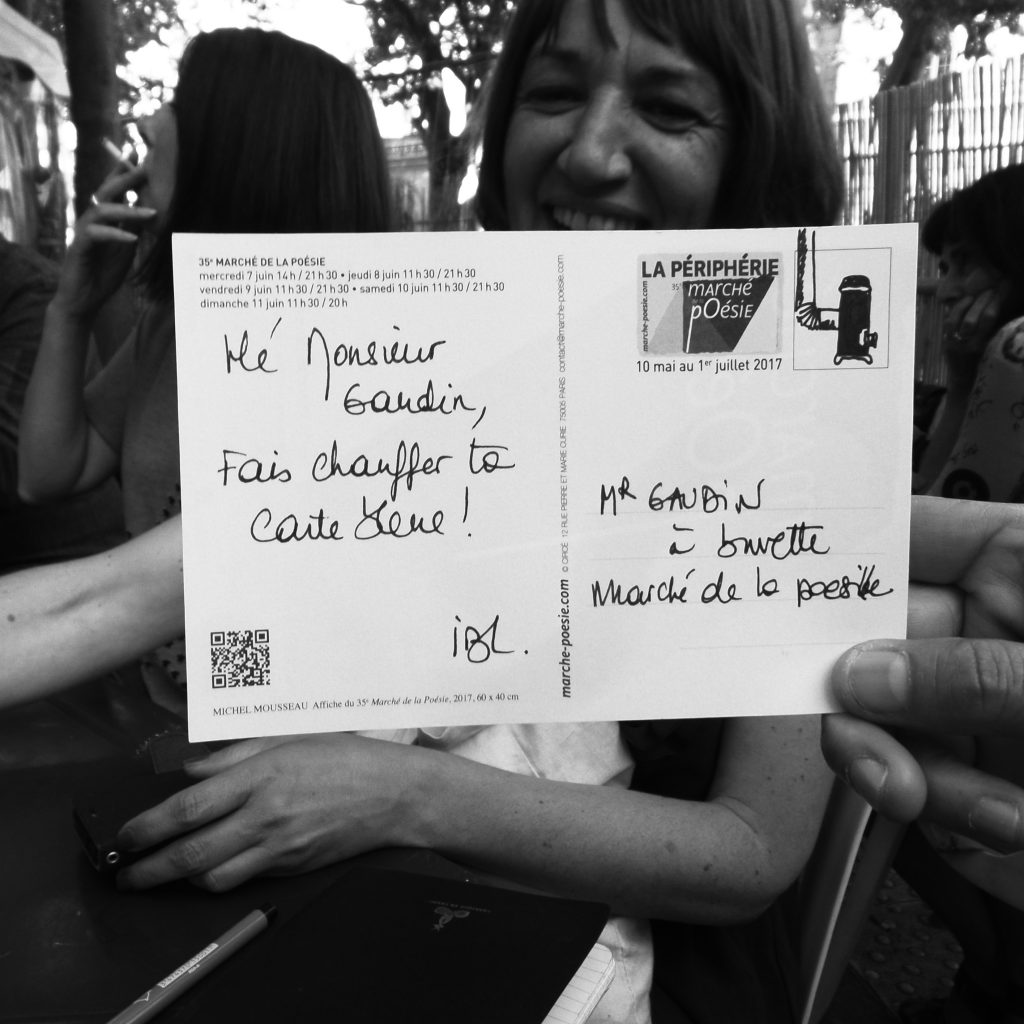 35e MARCHÉ DE LA POÉSIE
mercredi 7 juin 14 h / 21 h 30 • jeudi 8 juin 11 h 30 / 21 h 30
vendredi 9 juin 11 h 30 / 21 h 30 • samedi 10 juin 11 h 30 / 21 h 30
dimanche 11 juin 11 h 30 / 20 h
Hé Monsieur
Gaudin,
Fais chauffer ta
Carte Bleue !
iBL.
MICHEL MOUSSEAU Affiche du 35e Marché de la Poésie, 2017, 60 x 40 cm
marche-poesie.com © CIRCÉ 12 RUE PIERRE ET MARIE CURIE 75005 PARIS contact@marche-poesie.com
LA PÉRIPHÉRIE
marche-poesie.com
35e MARCHÉ
pOésIE
10 mai au 1er juillet 2017
MR GAUDIN
à buvette
Marché de la poesie